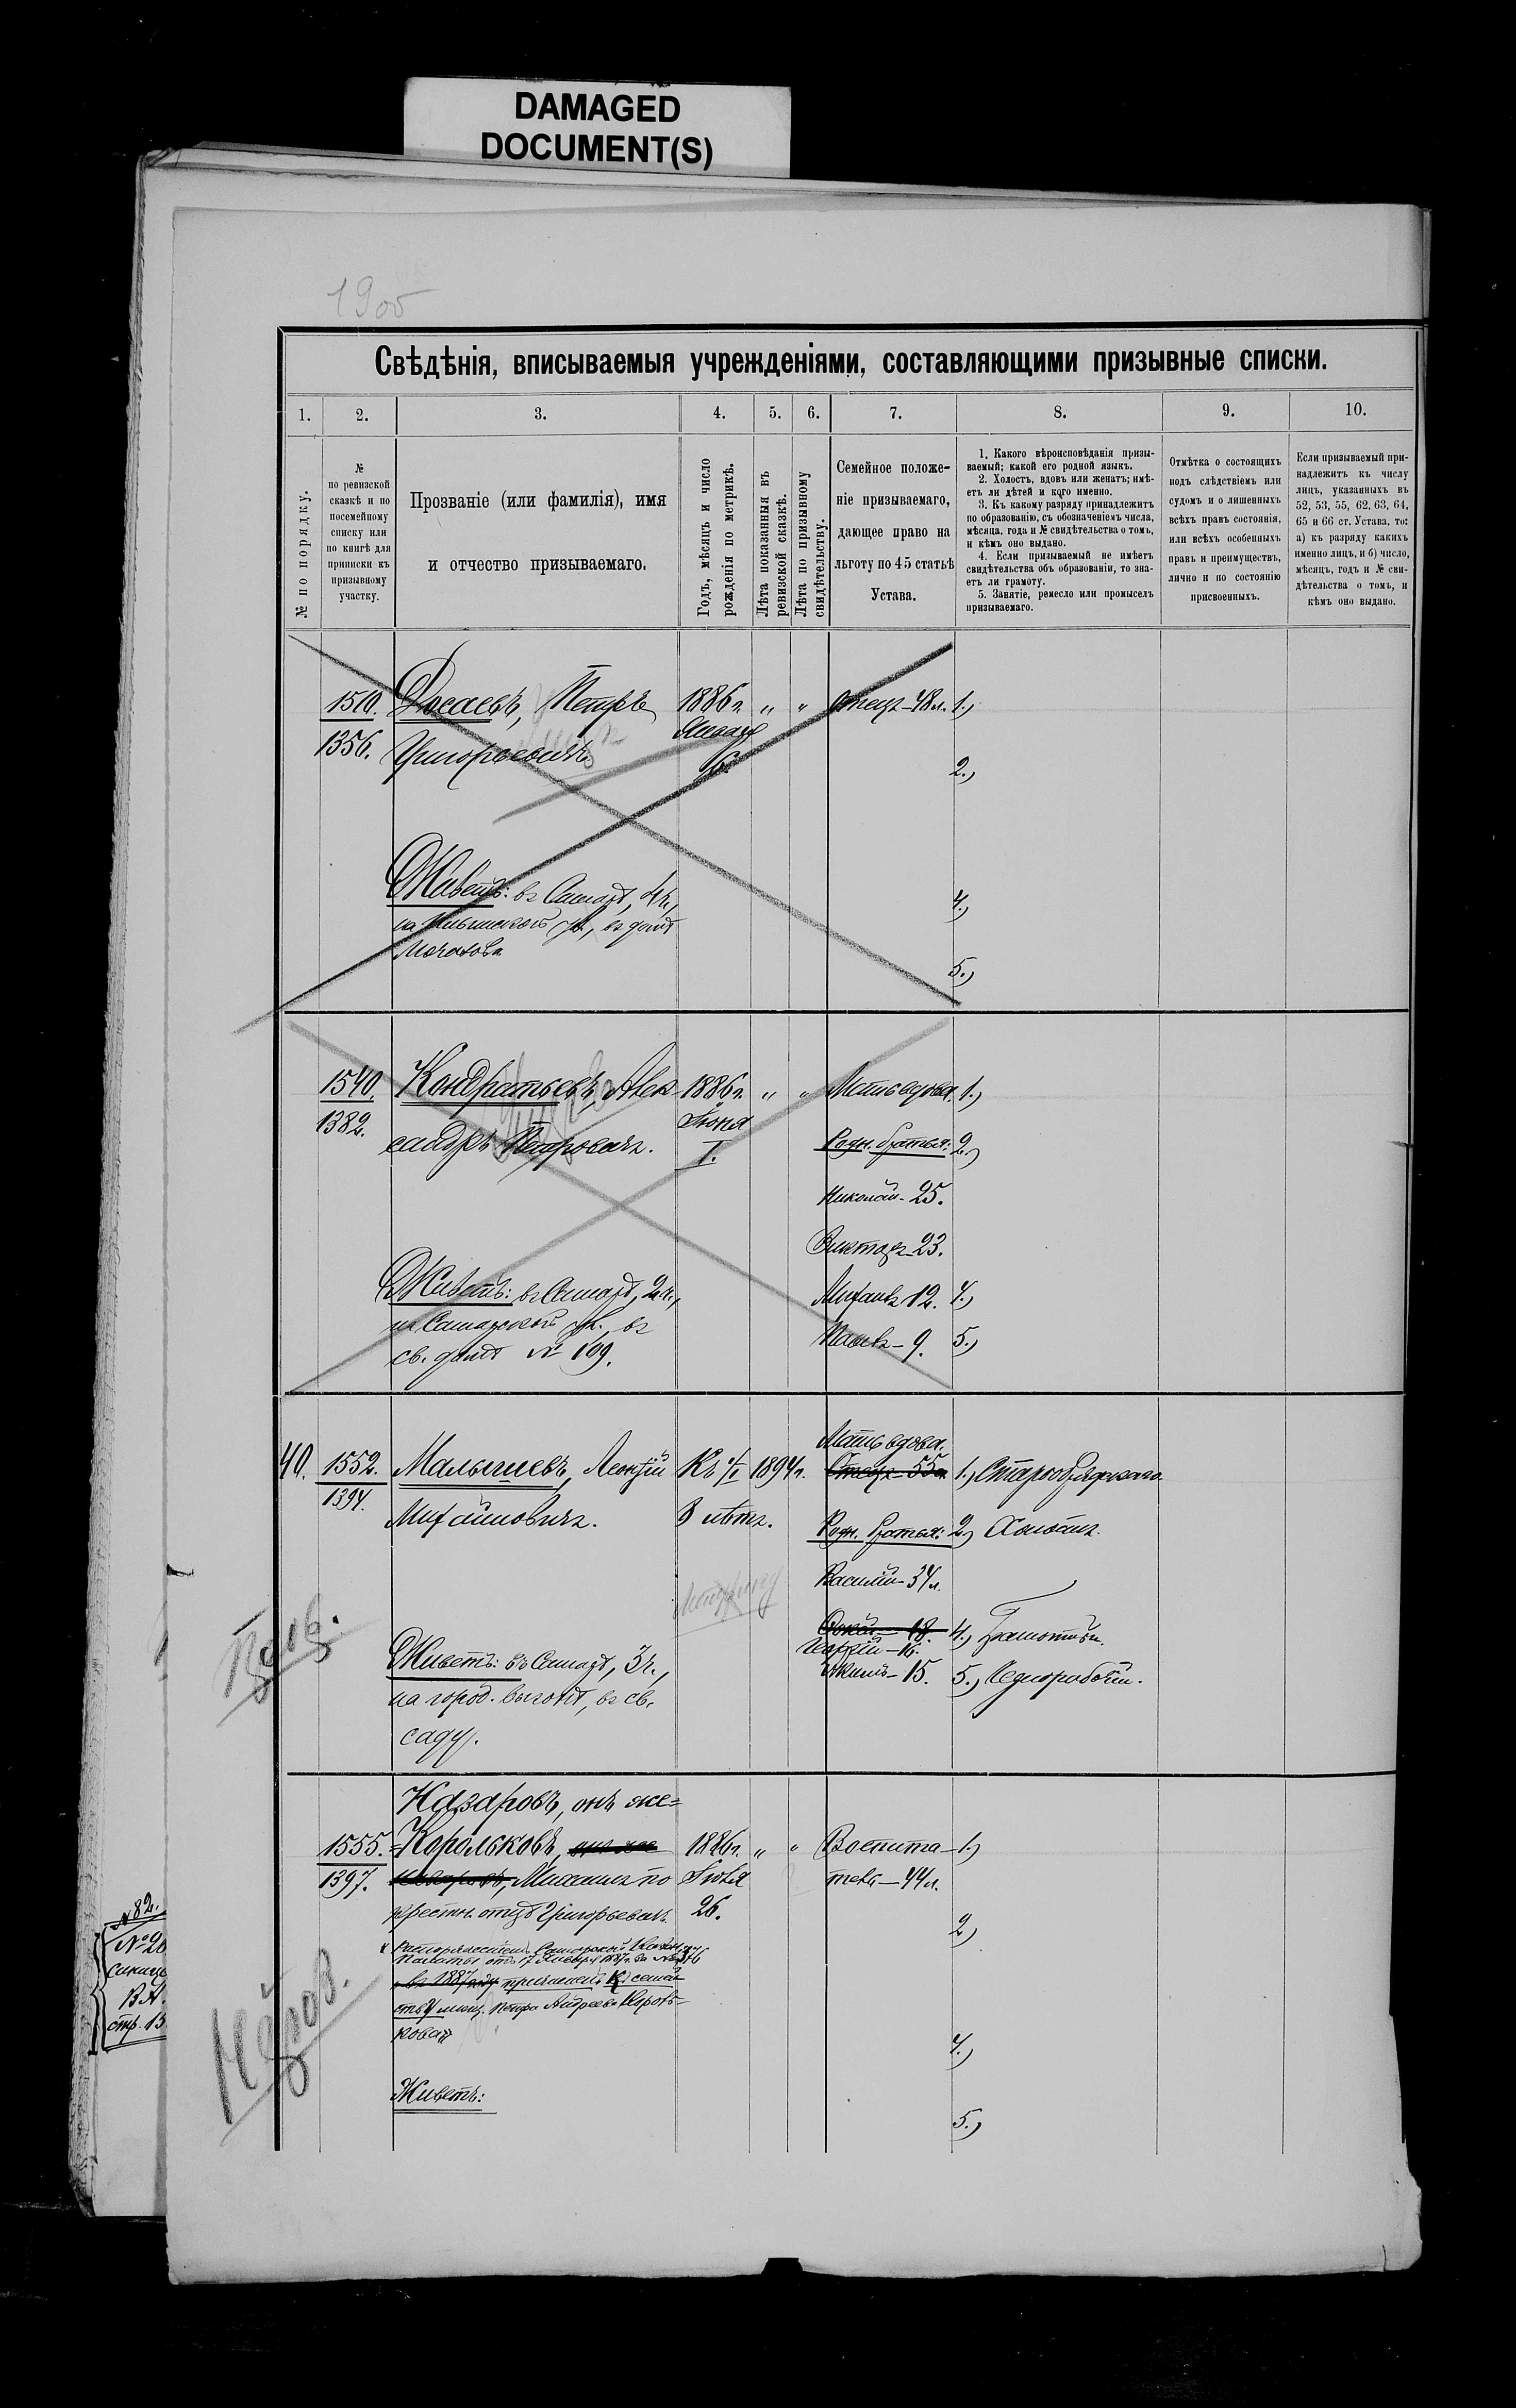 DAMAGED
DOCUMENT(S)
1905
Свѣдѣнія, вписываемыя учрежденіями, составляющими призывные списки.
1. 2. 3. 4. 5. 6. 7. 8. 9. 10.
№ по порядку.
№
по ревизской
сказкѣ и по
посемейному
списку или
по книгѣ для
приписки къ
призывному
участку.
Прозваніе (или фамилія), имя
и отчество призываемаго.
Годъ, мѣсяцъ и число
рожденія по метрикѣ.
Лѣта показанныя въ
ревизской сказкѣ.
Лѣта по призывному
свидѣтельству.
Семейное положе-
ніе призываемаго,
дающее право на
льготу по 45 статьѣ
Устава.
1. Какого вѣроисповѣданія призы-
ваемый; какой его родной языкъ.
2. Холостъ, вдовъ или женатъ; имѣ-
етъ ли дѣтей и кого именно.
3. Къ какому разряду принадлежитъ
по образованію, съ обозначеніемъ числа,
мѣсяца, года и № свидѣтельства о томъ,
и кѣмъ оно выдано.
4. Если призываемый не имѣетъ
свидѣтельства объ образованіи, то зна-
етъ ли грамоту.
5. Занятіе, ремесло или промыселъ
призываемаго.
Отмѣтка о состоящихъ
подъ слѣдствіемъ или
судомъ и о лишенныхъ
всѣхъ правъ состоянія,
или всѣхъ особенныхъ
правъ и преимуществъ,
лично и по состоянію
присвоенныхъ.
Если призываемый при-
надлежитъ къ числу
лицъ, указанныхъ въ
52, 53, 55, 62, 63, 64,
65 и 66 ст. Устава, то:
а) къ разряду какихъ
именно лицъ, и б) число,
мѣсяцъ, годъ и № сви-
дѣтельства о томъ, и
кѣмъ оно выдано.
1510. Петръ 1886г. " " Отецъ-48л. 1.)
1356. Григорьевичъ Января
16. 2.)
Живетъ: въ Самарѣ, 4ч., 4.)
на Ильинской ул., въ домѣ
5.)
1540. Кондратьевъ, Алек- 1886г. " " Мать вдова. 1.)
1382. сандръ Петровичъ. Іюня
1. Родн. братья: 2.)
Николай-25.
Викторъ-23.
Живетъ: въ Самарѣ, 2ч., Михаилъ 12. 4.)
на Самарской ул. въ
св. домѣ № 169. Павелъ-9. 5.)
Мать вдова.
40. 1552. Малышевъ, Леонтій Къ 1/I 1894г. Отецъ-55л. 1.) Старообрядческаго
1394. Михайловичъ. 8 лѣтъ.
Родн. братья: 2.) Холостъ.
Василій-34л.
18. 4.) Грамотный.
Георгій-16.
Живетъ: въ Самарѣ, 3ч., 15. 5.) Чернорабочій.
на город. выгонѣ, въ св.
саду.
Назаровъ, онъ же=
1555. =Корольковъ, онъ же 1886г. " " Воспита- 1.)
1397. Назаровъ, Михаилъ по Іюля тель-44л.
крестн. отцѣ Григорьевичъ. 26.
2.)
Распоряженіемъ Самарской Казен.
Палаты отъ 17 Января 1887г. за №
въ 1887 году причисленъ къ семей-
ству мѣщ. Петра Андреева Король-
кова
4.)
Живетъ:
5.)
№82.
№20
В А.
стр. 13